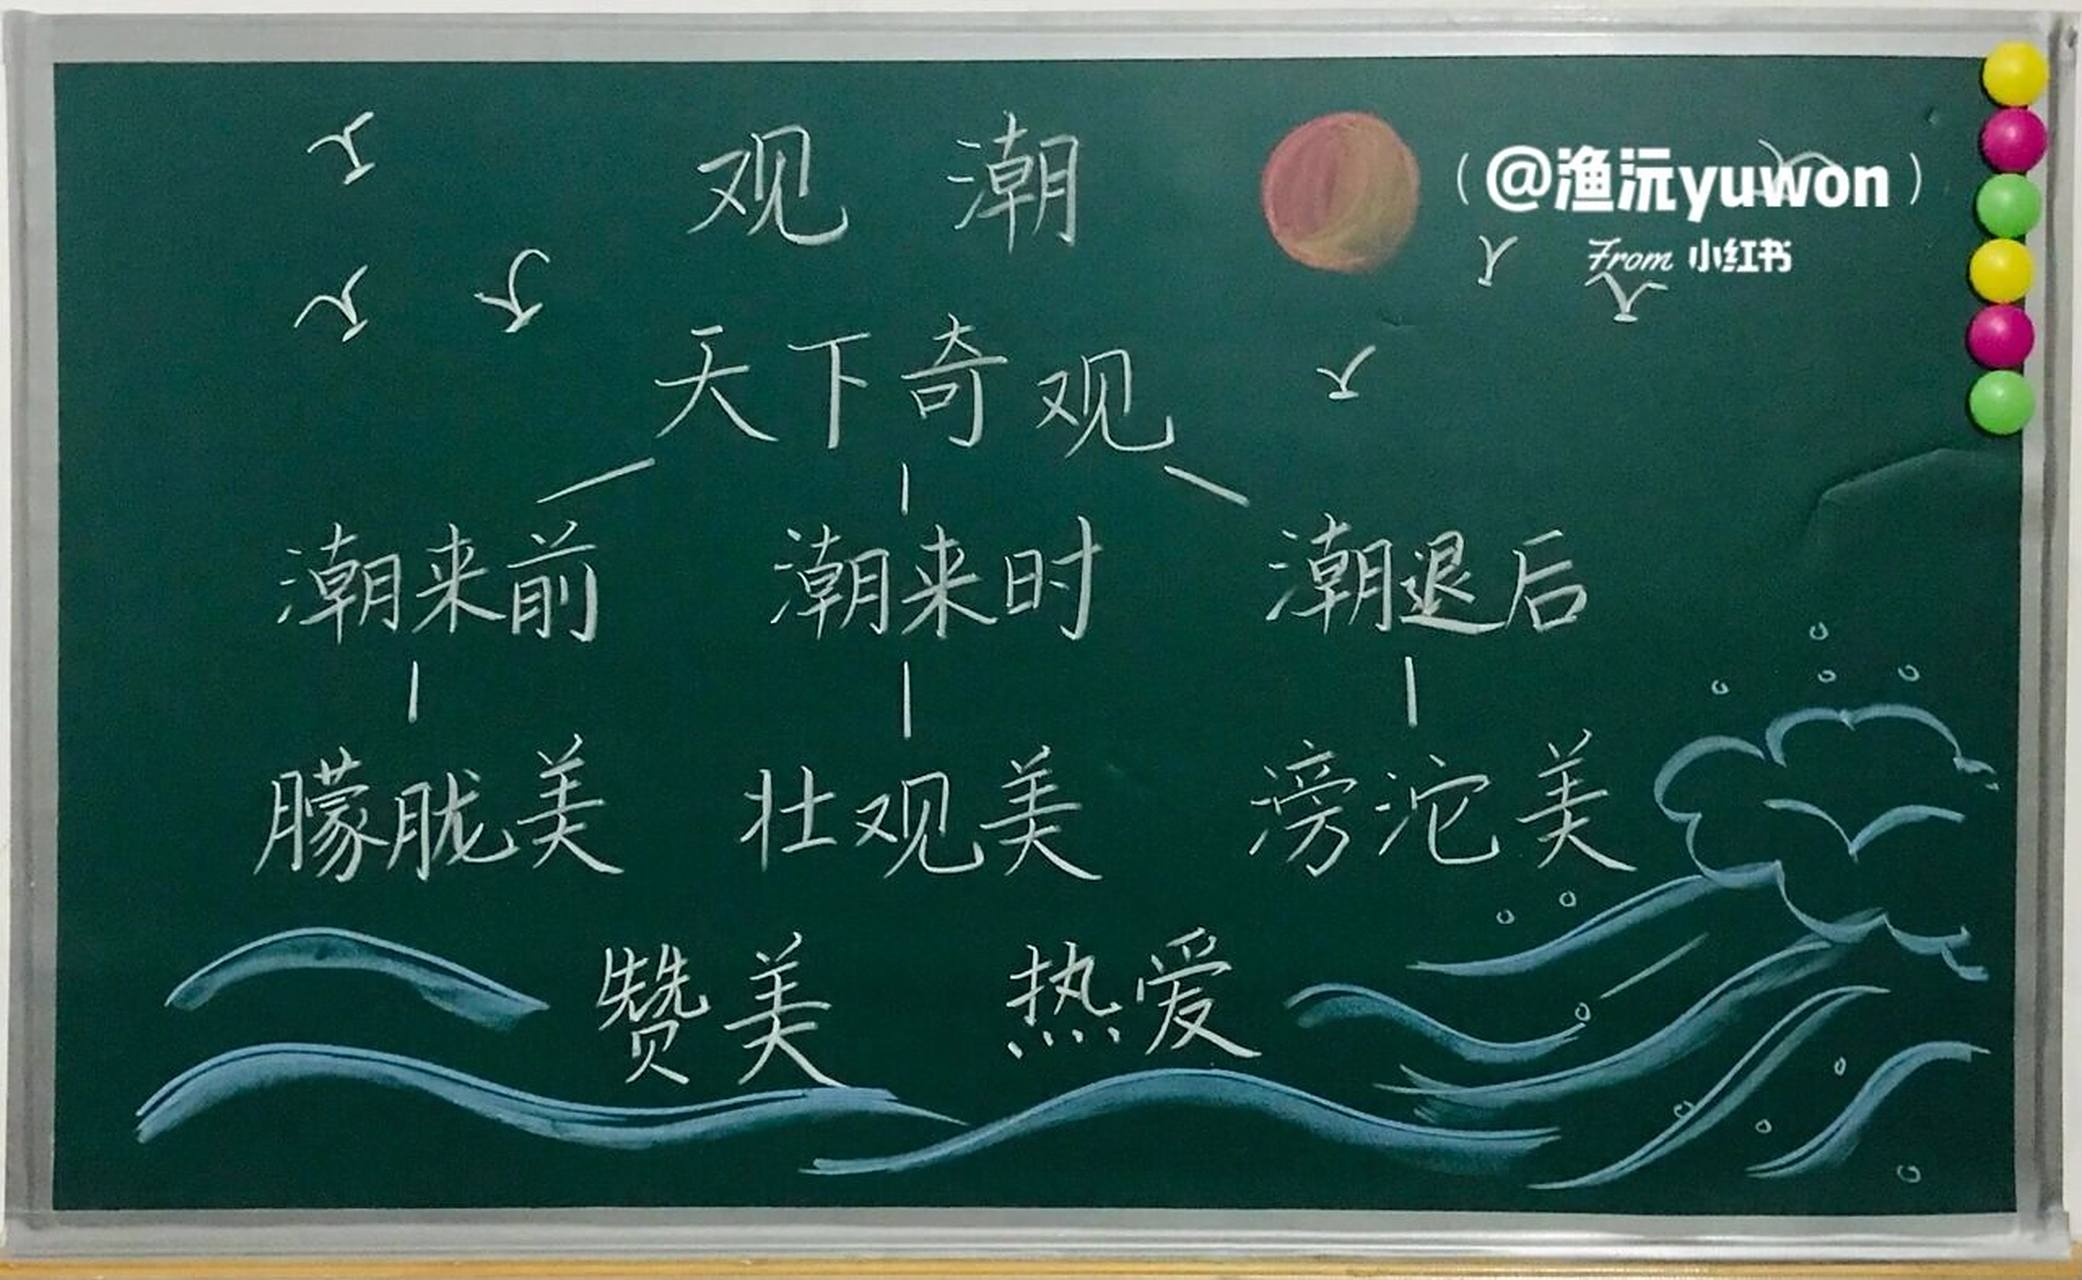 观潮
(@渔沅yuwon)
From 小红书
天下奇观
潮来前 潮来时 潮退后
朦胧美 壮观美 滂沱美
赞美 热爱